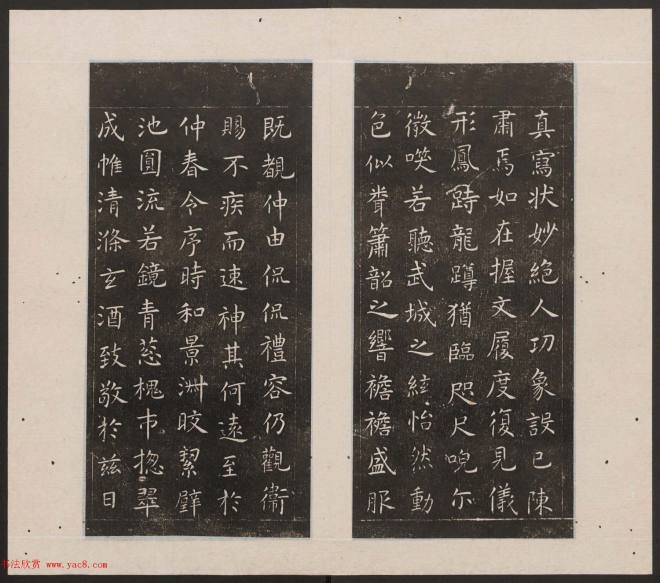 真寫狀妙絕人功象設已陳
肅焉如在握文履度復見儀
形鳳跱龍蹲猶臨咫尺唲尔
微唉若聽武城之絃怡然動
色似聾簫韶之響襜襜盛服
既覩仲由侃侃禮容仍觀衛
賜不疾而速神其何遠至於
仲春令序時和景淑皎絜璧
池圓流若鏡青葱槐市揔翠
成帷清滌玄酒致敬於茲日
书法欣赏 www.yac8.com